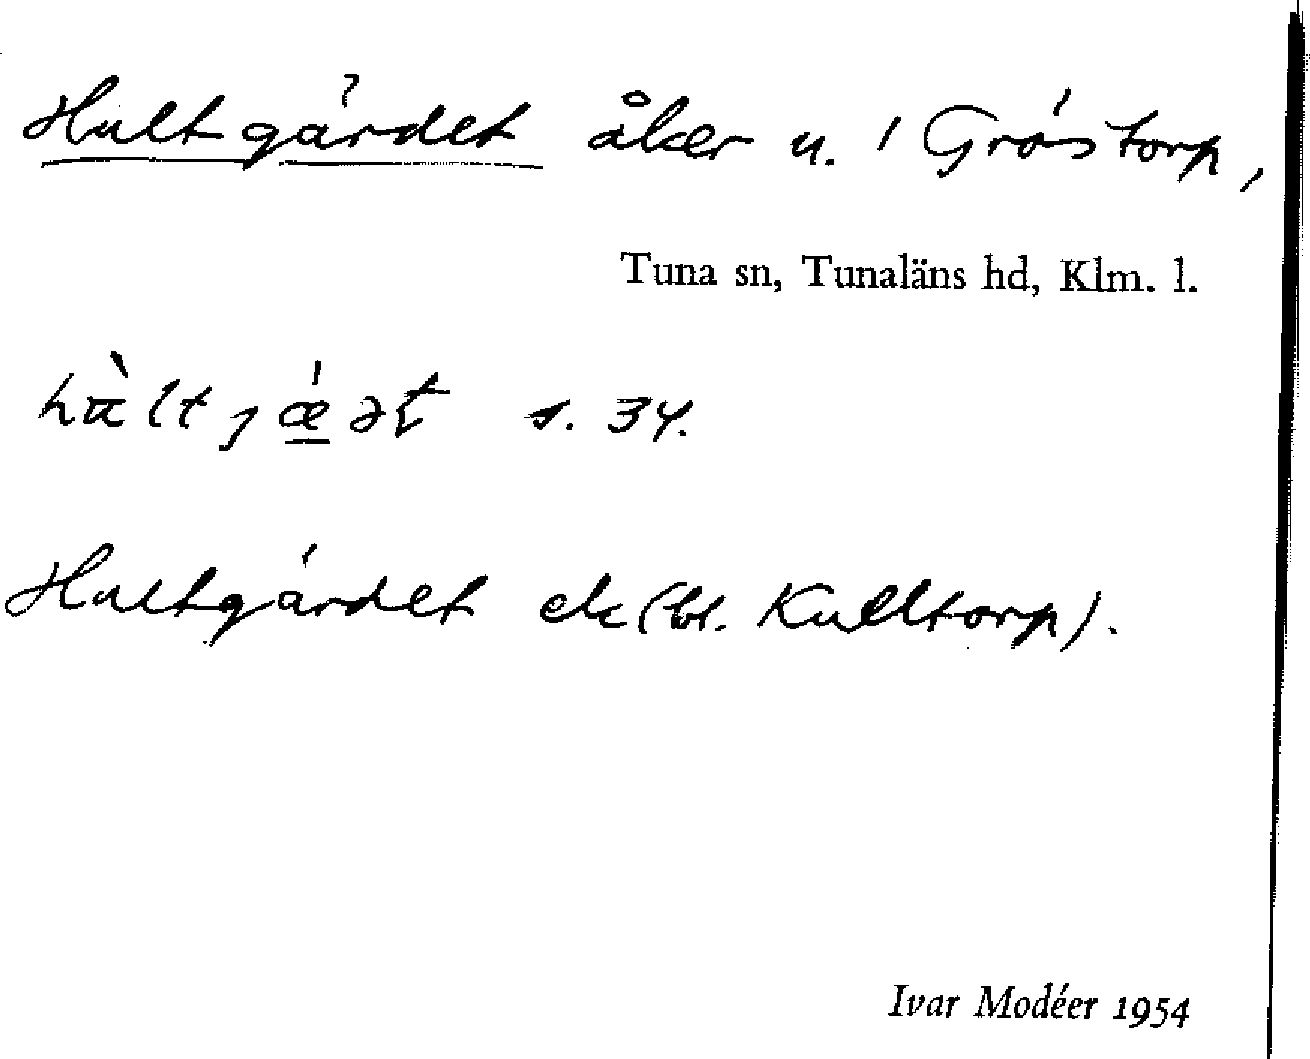 Hultgärdet åker u. 1 Gröstorp,
Tuna sn, Tunaläns hd, Klm. l.
s. 34.
Hultgärdet ek (bl. Kulltorp).
Ivar Modéer 1954